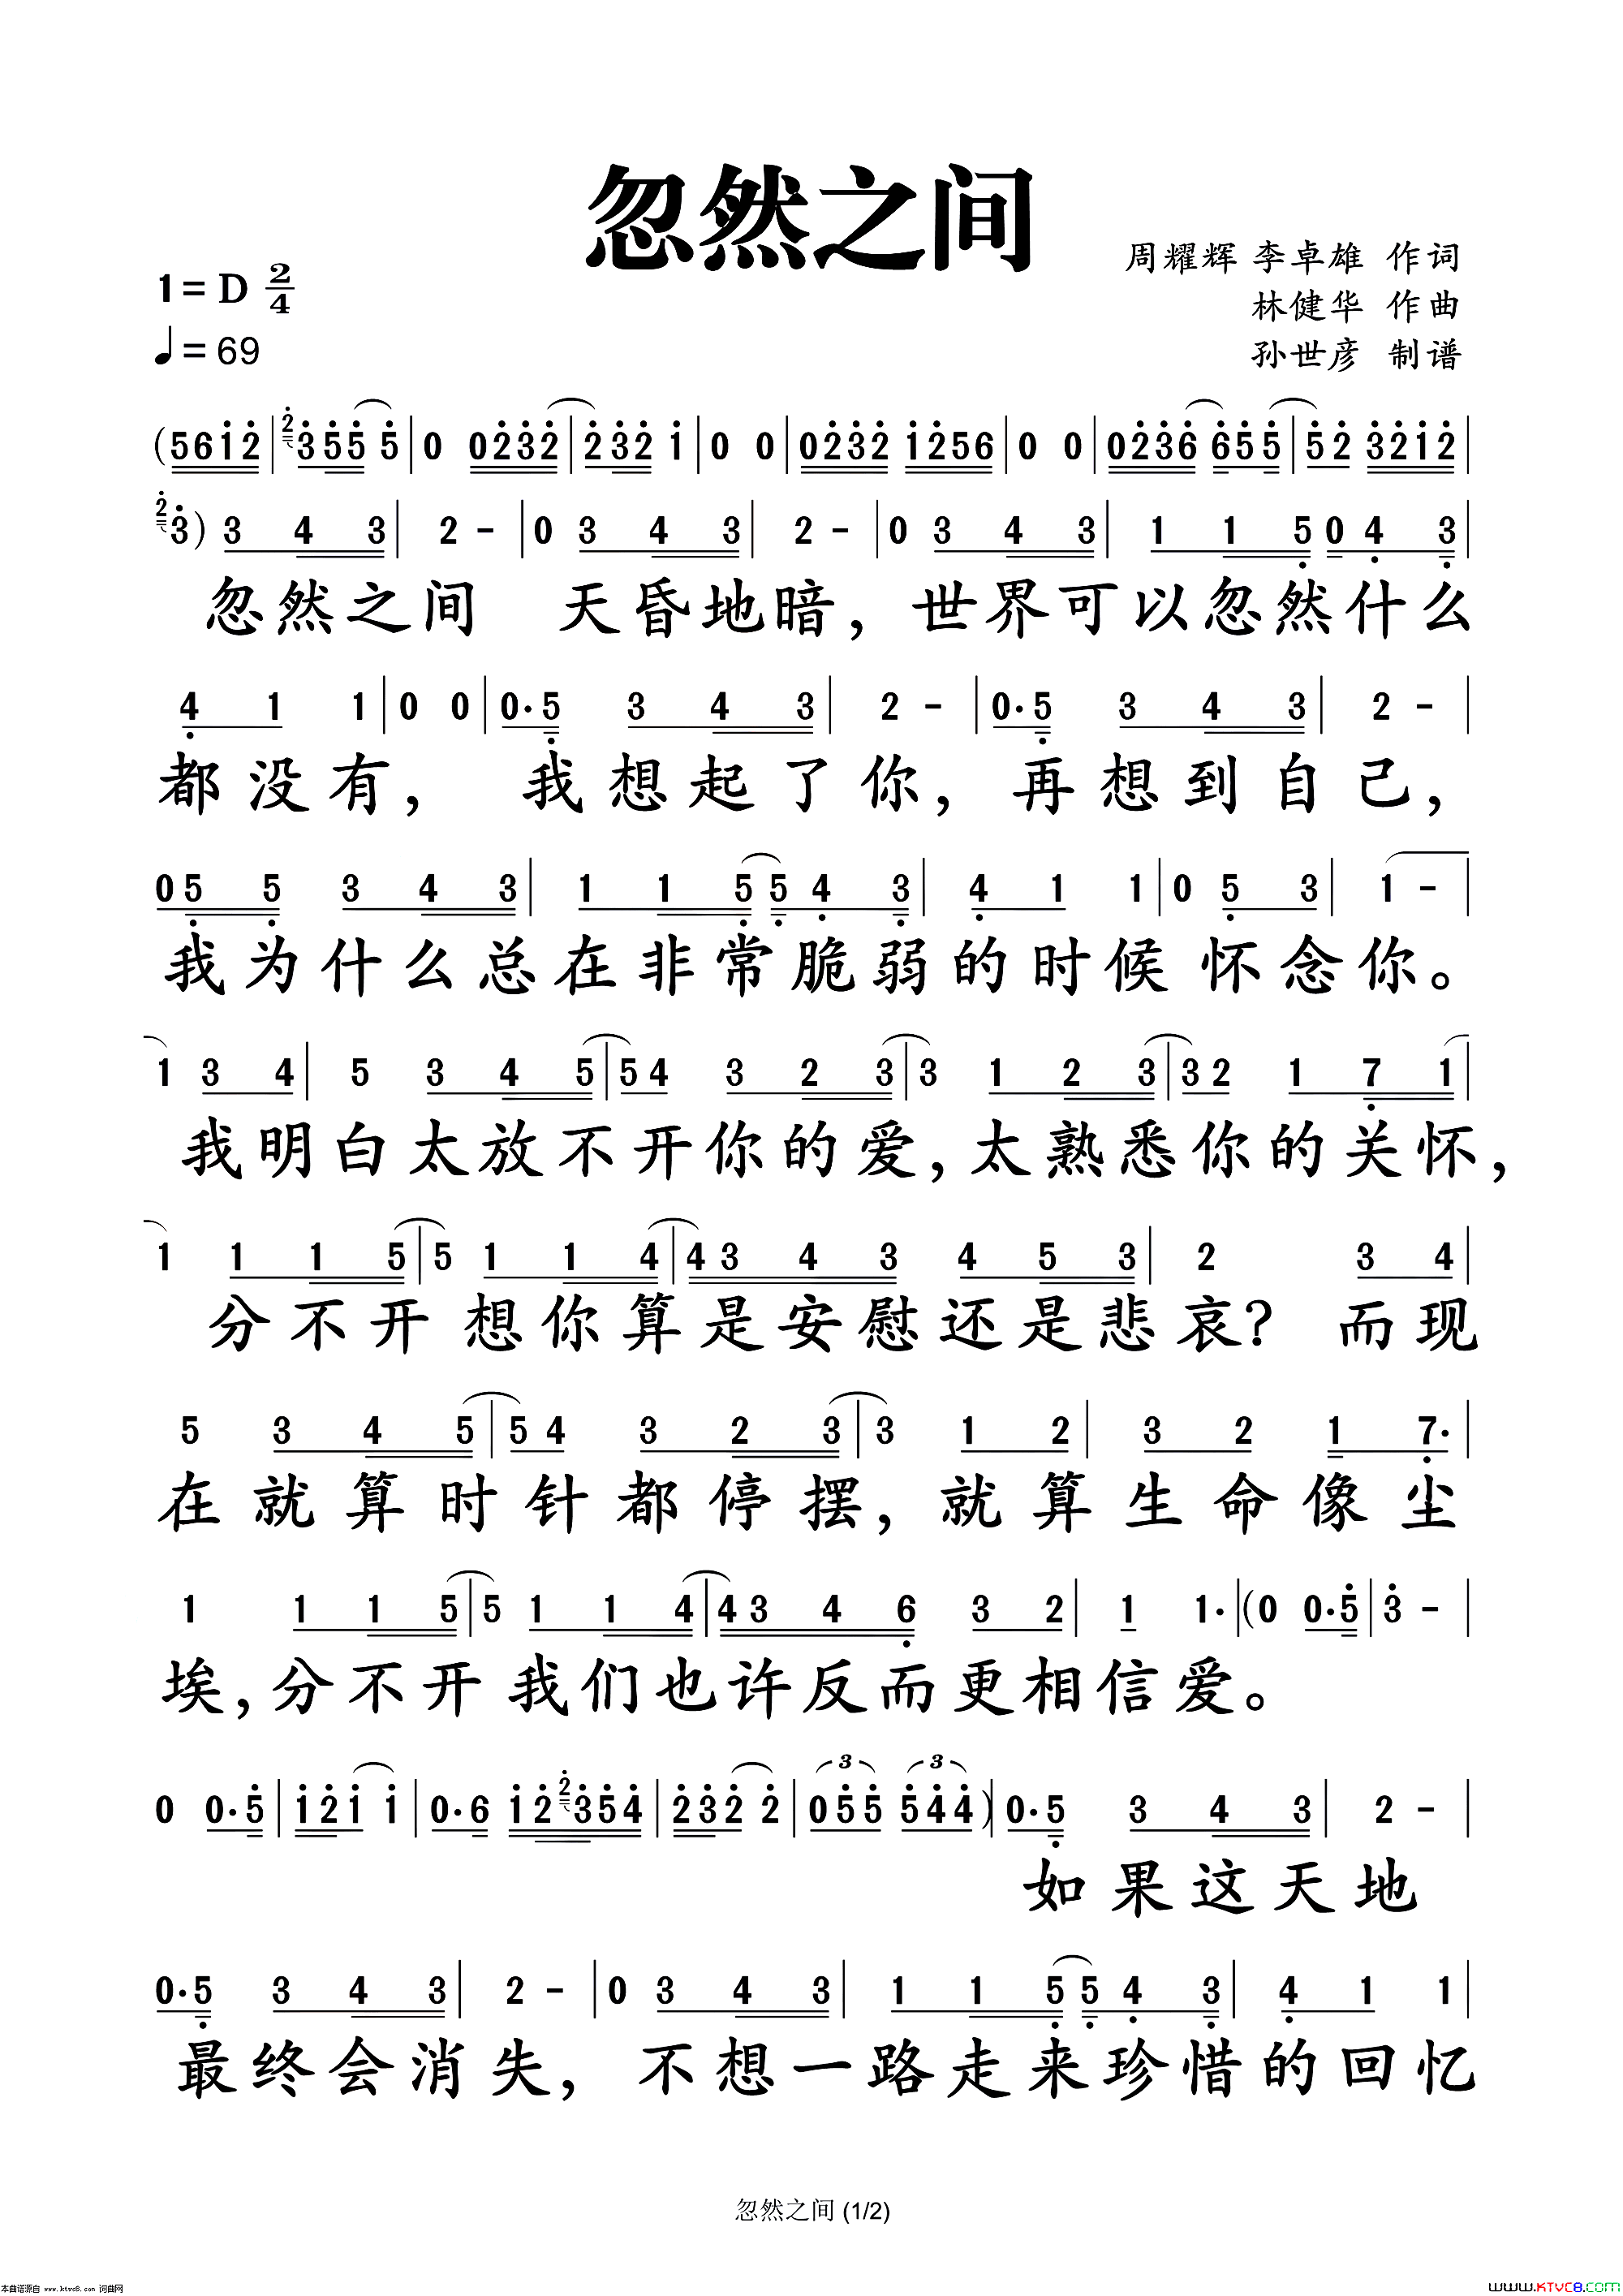 忽然之间
周耀辉 李卓雄 作词
1= D 2/4
林健华 作曲
♩= 69
孙世彦 制谱
(5 6 1̇ 2̇ | 2̇ 3̇ 5̇ 5̇ 5̇ | 0 0 2̇ 3̇ 2̇ | 2̇ 3̇ 2̇ 1̇ | 0 0 | 0 2̇ 3̇ 2̇ 1̇ 2̇ 5 6 | 0 0 | 0 2̇ 3̇ 6̇ 6̇ 5̇ 5̇ | 5̇ 2̇ 3̇ 2̇ 1̇ 2̇ |
2̇ 3̇) 3 4 3 | 2 - | 0 3 4 3 | 2 - | 0 3 4 3 | 1 1 5̣ 0 4̣ 3̣ |
忽然之间 天昏地暗，世界可以忽然什么
4̣ 1 1 | 0 0 | 0. 5̣ 3 4 3 | 2 - | 0. 5̣ 3 4 3 | 2 - |
都没有， 我想起了你，再想到自己，
0 5̣ 5̣ 3 4 3 | 1 1 5̣ 5̣ 4̣ 3̣ | 4̣ 1 1 | 0 5̣ 3 | 1 - |
我为什么总在非常脆弱的时候怀念你。
1 3 4 | 5 3 4 5 | 5 4 3 2 3 | 3 1 2 3 | 3 2 1 7̣ 1 |
我明白太放不开你的爱，太熟悉你的关怀，
1 1 1 5 | 5 1 1 4 | 4 3 4 3 4 5 3 | 2 3 4 |
分不开想你算是安慰还是悲哀？ 而现
5 3 4 5 | 5 4 3 2 3 | 3 1 2 | 3 2 1 7̣. |
在就算时针都停摆，就算生命像尘
1 1 1 5 | 5 1 1 4 | 4 3 4 6̣ 3 2 | 1 1. | (0 0. 5̇ | 3̇ - |
埃，分不开我们也许反而更相信爱。
0 0. 5̇ | 1̇ 2̇ 1̇ 1̇ | 0. 6 1̇ 2̇ 2̇ 3̇ 5̇ 4̇ | 2̇ 3̇ 2̇ 2̇ | 3 0 5̇ 5̇ 3 5̇ 4̇ 4̇) | 0. 5̣ 3 4 3 | 2 - |
如果这天地
0. 5̣ 3 4 3 | 2 - | 0 3 4 3 | 1 1 5̣ 5̣ 4̣ 3̣ | 4̣ 1 1 |
最终会消失，不想一路走来珍惜的回忆
忽然之间 (1/2)
本曲谱源自 www.ktvc8.com 词曲网
www.KTVC8.com